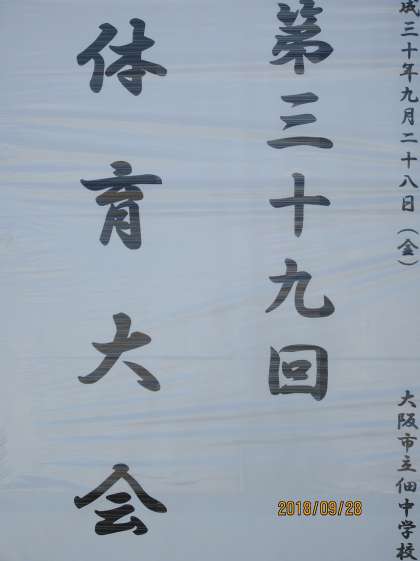 成三十年九月二十八日（金）
大阪市立佃中学校
第三十九回
体育大会
2018/09/28